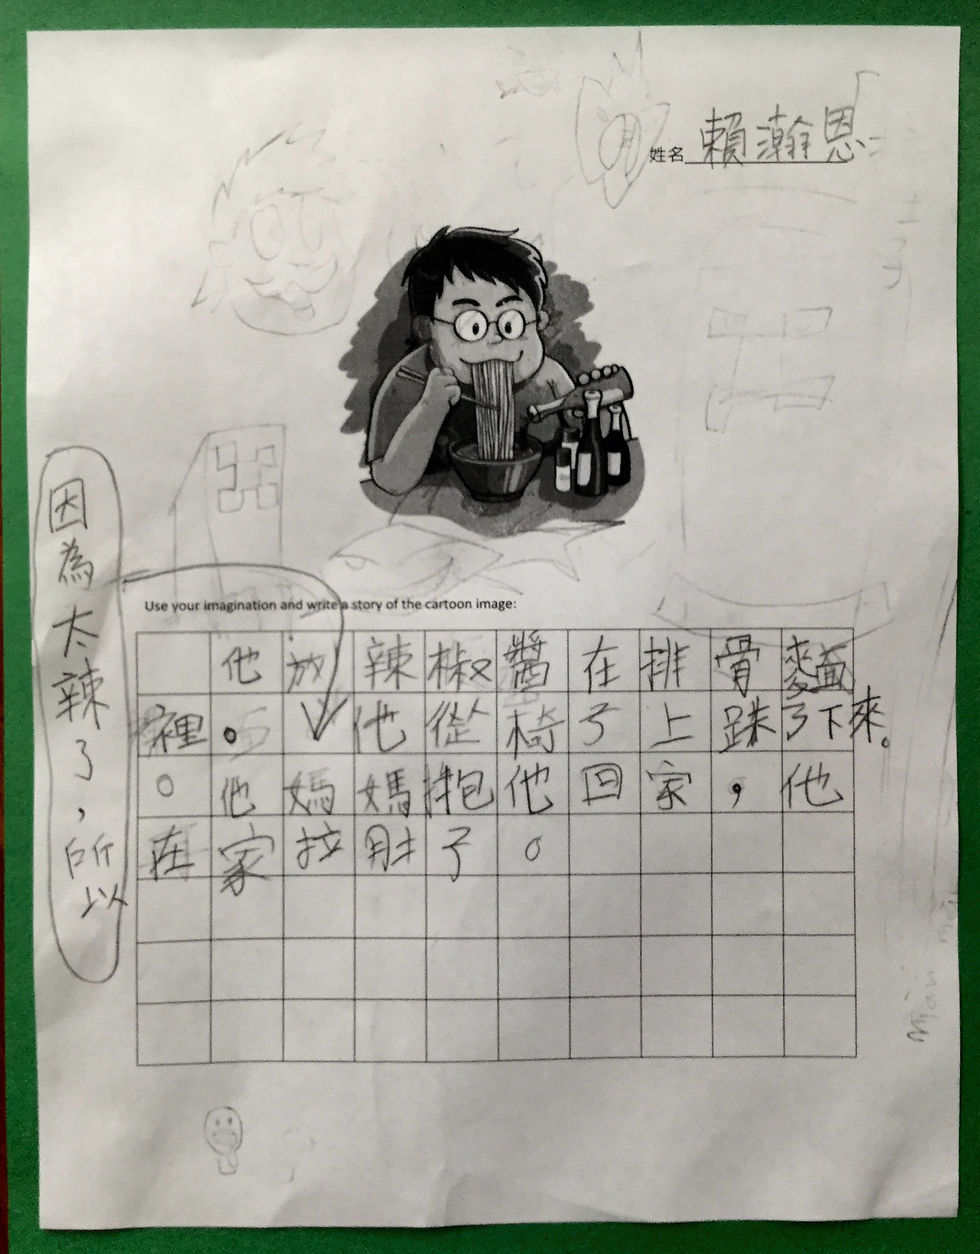 姓名 賴瀚恩
Use your imagination and write a story of the cartoon image:
他放辣椒醬在排骨麵
裡。他從椅子上跌了下來。
。他媽媽抱他回家，他
在家拉肚子。
因為太辣了，所以